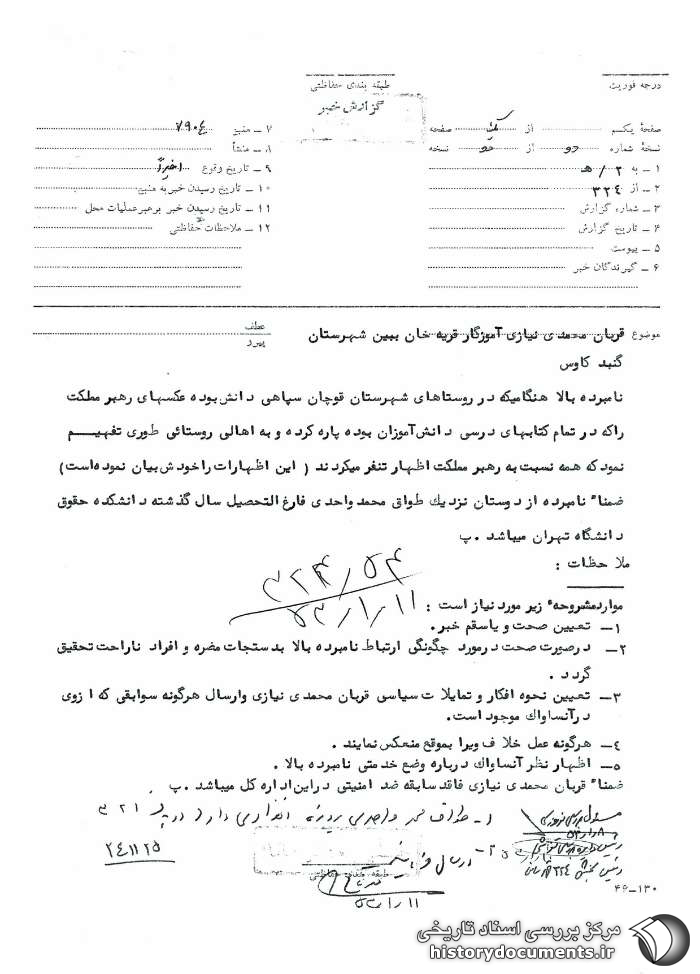 درجه فوریت
طبقه بندی حفاظتی
گزارش خبر
صفحهٔ یکم از یک صفحه
نسخهٔ شماره دو از دو نسخه
۱ ـ به ۲ / هـ
۲ ـ از ۳۲٤
۳ ـ شماره گزارش
۴ ـ تاریخ گزارش
۵ ـ پیوست
۶ ـ گیرندگان خبر
۷ ـ منبع ۷۹۰٤
۸ ـ منشأ
۹ ـ تاریخ وقوع اخیراً
۱۰ ـ تاریخ رسیدن خبر به منبع
۱۱ ـ تاریخ رسیدن خبر برهبر عملیات محل
۱۲ ـ ملاحظات حفاظتی
موضوع قربان محمدی نیازی آموزگار قریه خان ببین شهرستان
گنبد کاوس
عطف
پیرو
نامبرده بالا هنگامیکه در روستاهای شهرستان قوچان سپاهی دانش بوده عکسهای رهبر مملکت
راکه در تمام کتابهای درسی دانش آموزان بوده پاره کرده و به اهالی روستائی طوری تفهیم
نمود که همه نسبت به رهبر مملکت اظهار تنفر میکردند ( این اظهارات را خودش بیان نموده است)
ضمنا" نامبرده از دوستان نزدیك طواق محمد واحدی فارغ التحصیل سال گذشته دانشکده حقوق
دانشگاه تهران میباشد .پ
ملاحظات :
۳۲۴/۵۴
۱۱/۱/۵۳
موارد مشروحه" زیر مورد نیاز است :
۱ـ تعیین صحت و یاسقم خبر.
۲ـ درصورت صحت درمورد چگونگی ارتباط نامبرده بالا بدستجات مضره و افراد ناراحت تحقیق
گردد .
۳ـ تعیین نحوه افکار و تمایلات سیاسی قربان محمدی نیازی وارسال هرگونه سوابقی که ازوی
درآنساواك موجود است.
۴ـ هرگونه عمل خلاف ویرا بموقع منعکس نمایند .
۵ـ اظهار نظر آنساواك درباره وضع خدمتی نامبرده بالا .
ضمنا" قربان محمدی نیازی فاقد سابقه ضد امنیتی دراین اداره کل میباشد .پ
۱ـ طواق محمد واحدی پرونده انفرادی دارد
۳۲۱
۲٤۱۱۲۵
طبقه بندی حفاظتی
۱۱/۱/۵۳
۴۶ـ۱۳۰
مرکز بررسی اسناد تاریخی
historydocuments.ir